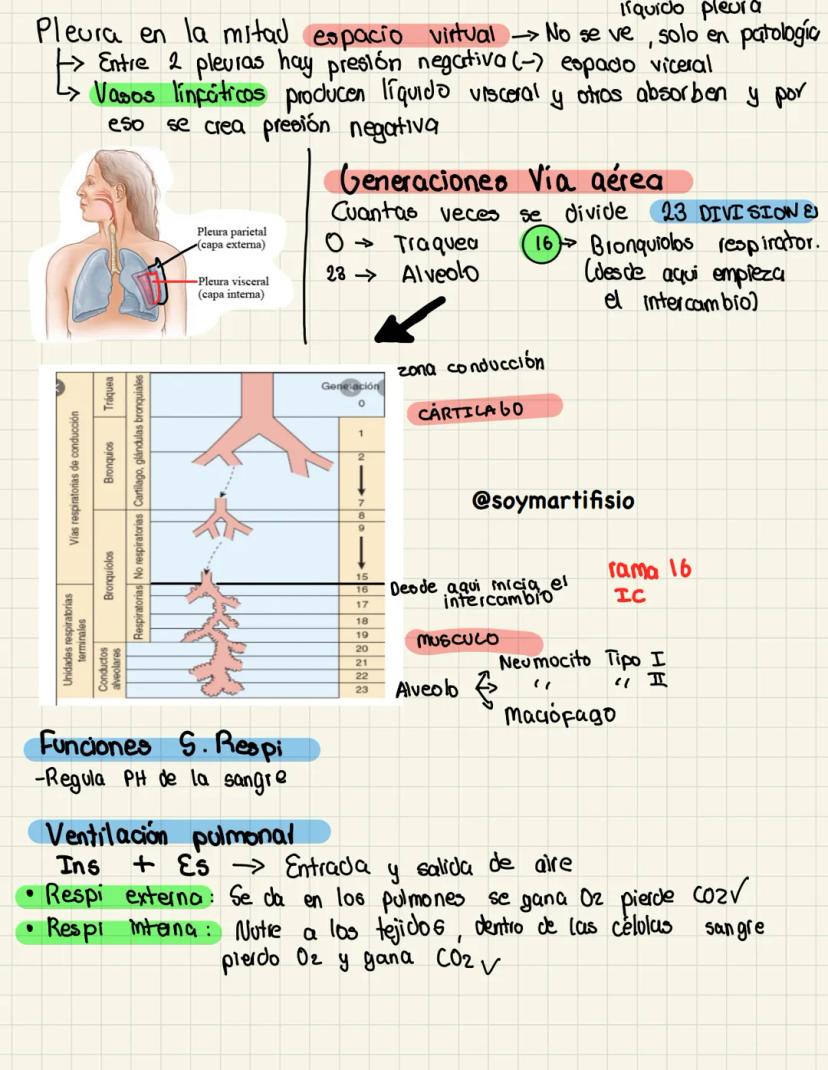 líquido pleura
Pleura en la mitad espacio virtual → No se ve, solo en patología
↳ Entre 2 pleuras hay presión negativa (-) espacio viceral
↳ Vasos linfáticos producen líquido visceral y otros absorben y por
eso se crea presión negativa
Pleura parietal
(capa externa)
Pleura visceral
(capa interna)
Generaciones Vía aérea
Cuantas veces se divide 23 DIVISIONES
0 → Traquea
16 → Bronquiolos respirator.
23 → Alveolo
(desde aqui empieza
el intercambio)
zona conducción
CÁRTILAGO
Generación
0
1
2
7
8
9
15
16
17
18
19
20
21
22
23
Vías respiratorias de conducción
Unidades respiratorias
terminales
Tráquea
Bronquios
Bronquiolos
Conductos
alveolares
Cartílago, glándulas bronquiales
No respiratorias
Respiratorias
@soymartifisio
Desde aqui inicia el
intercambio
rama 16
IC
MUSCULO
Alveolo
Neumocito Tipo I
" " II
Macrófago
Funciones S. Respi
-Regula PH de la sangre
Ventilación pulmonal
Ins + Es → Entrada y salida de aire
• Respi externa: Se da en los pulmones se gana O2 pierde CO2✓
• Respi interna: Nutre a los tejidos, dentro de las células sangre
pierdo O2 y gana CO2 ✓